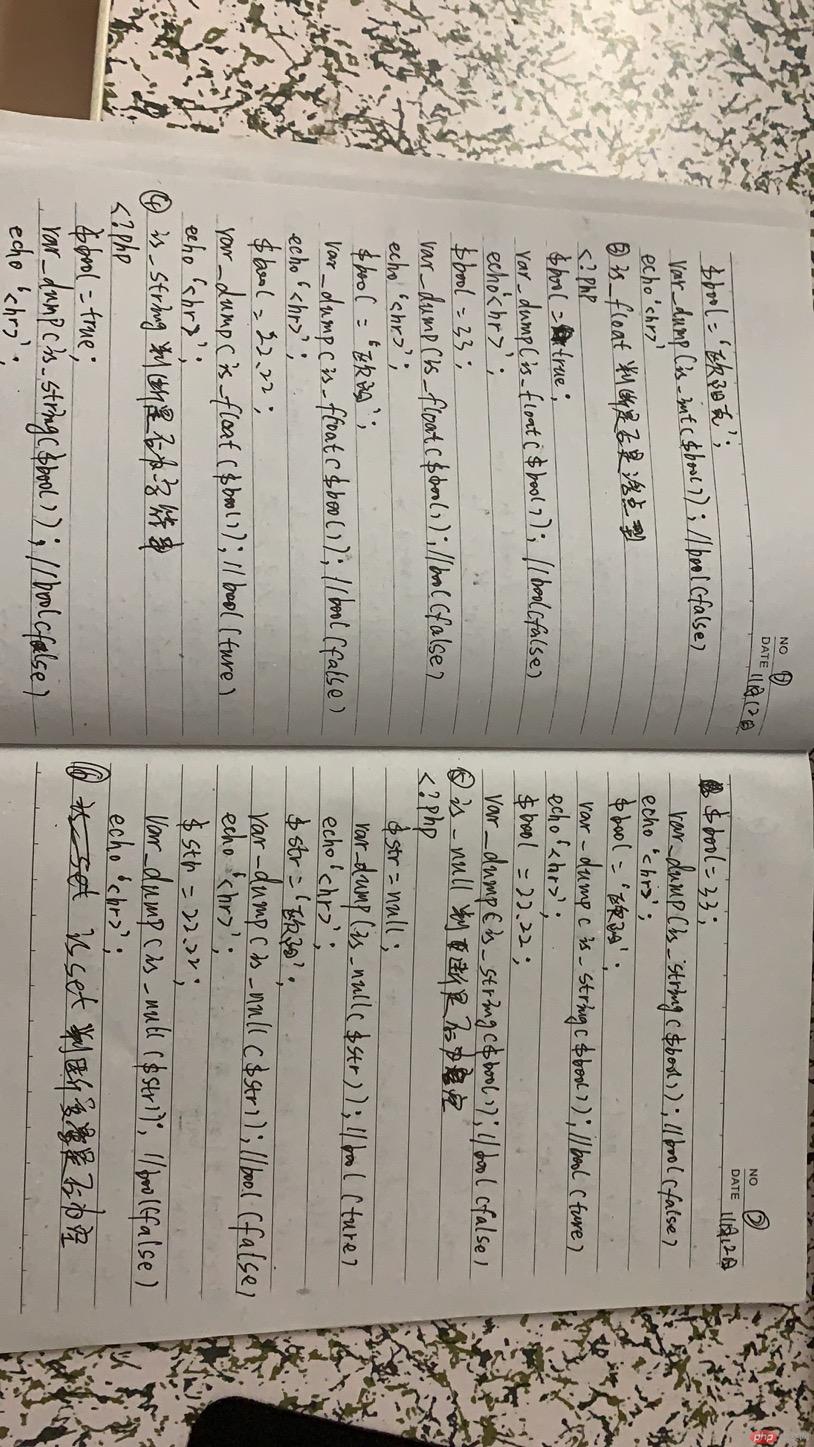 NO ①
DATE 11月12日
$bool = '欧阳克';
var_dump(is_int($bool)); //bool(false)
echo '<hr>'
③ is_float 判断是否是浮点型
<?php
$bool = true;
var_dump(is_float($bool)); //bool(false)
echo '<hr>';
$bool = 33;
var_dump(is_float($bool)); //bool(false)
echo '<hr>';
$bool = '欧阳';
var_dump(is_float($bool)); //bool(false)
echo '<hr>';
$bool = 22.22;
var_dump(is_float($bool)); //bool(ture)
echo '<hr>';
④ is_string 判断是否为字符串
<?php
$bool = true;
var_dump(is_string($bool)); //bool(false)
echo '<hr>';
NO ②
DATE 11月12日
$bool = 33;
var_dump(is_string($bool)); //bool(false)
echo '<hr>';
$bool = '欧阳';
var_dump(is_string($bool)); //bool(ture)
echo '<hr>';
$bool = 22.22;
var_dump(is_string($bool)); //bool(false)
⑤ is_null 判断是否为空
<?php
$str = null;
var_dump(is_null($str)); //bool(ture)
echo '<hr>';
$str = '欧阳';
var_dump(is_null($str)); //bool(false)
echo '<hr>';
$str = 22.22;
var_dump(is_null($str)); //bool(false)
echo '<hr>';
⑥ isset 判断变量是否为空
php